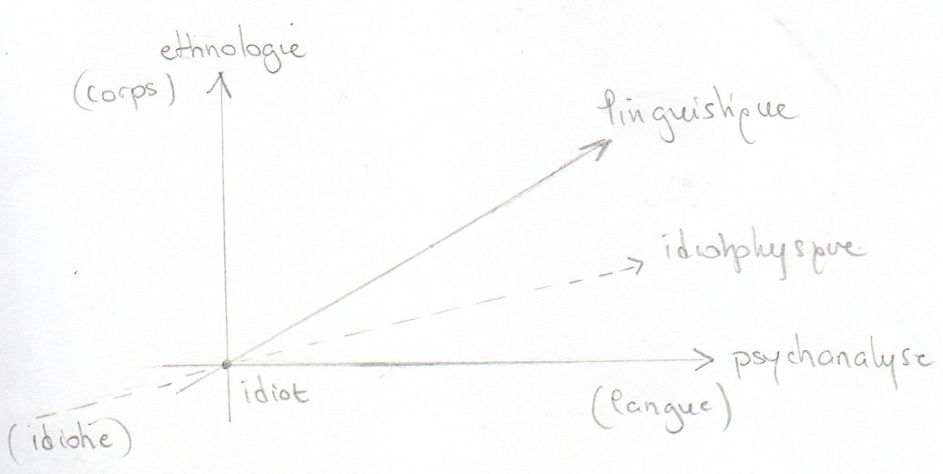 ethnologie
(corps)
linguistique
idiotphysique
psychanalyse
idiot
(langue)
(idiotie)